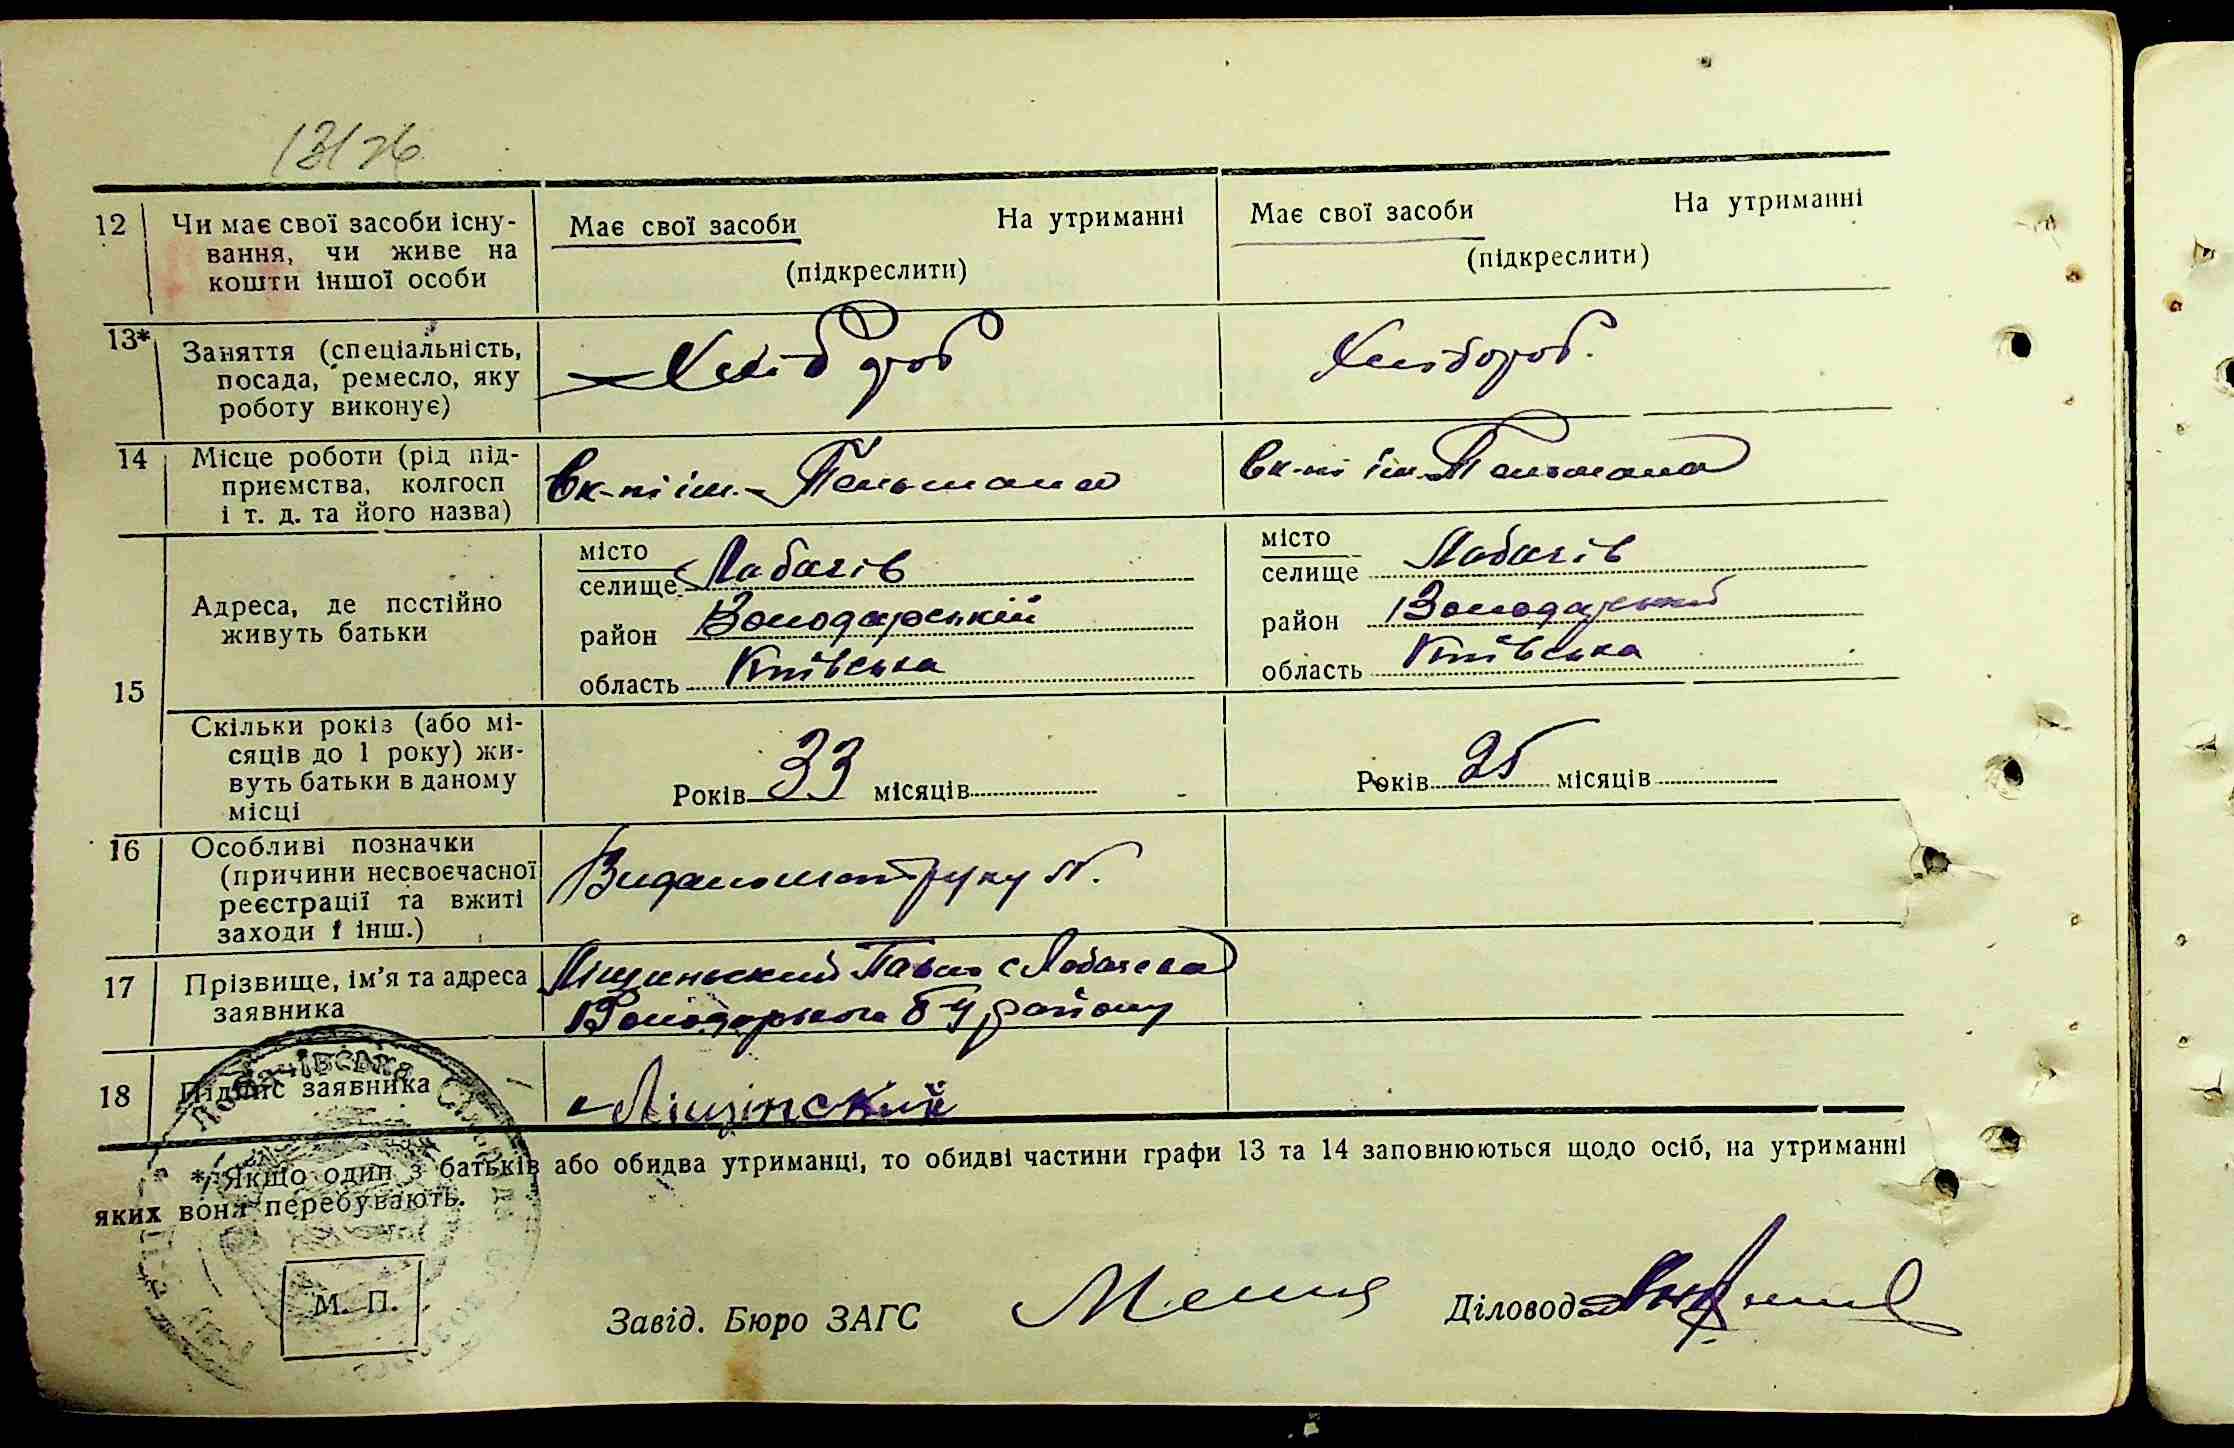 13/26
12 Чи має свої засоби існу- Має свої засоби На утриманні Має свої засоби На утриманні
вання, чи живе на (підкреслити) (підкреслити)
кошти іншої особи
13* Заняття (спеціальність, Хлібороб Хлібороб.
посада, ремесло, яку
роботу виконує)
14 Місце роботи (рід під- в к-пі ім. Тельмана в к-пі ім. Тельмана
приємства, колгосп
і т. д. та його назва)
15 Адреса, де постійно
живуть батьки
місто
селище Лобачів
район Володарський
область Київська
місто
селище Лобачів
район Володарський
область Київська
Скільки років (або мі-
сяців до 1 року) жи-
вуть батьки в даному
місці
Років 33 місяців
Років 25 місяців
16 Особливі позначки
(причини несвоєчасної
реєстрації та вжиті
заходи і інш.)
17 Прізвище, ім'я та адреса Ліщинський Павло с Лобачева
заявника району
18 Підпис заявника Ліщінский
* Якщо один з батьків або обидва утриманці, то обидві частини графи 13 та 14 заповнюються щодо осіб, на утриманні
яких вони перебувають.
М. П.
Завід. Бюро ЗАГС Діловод